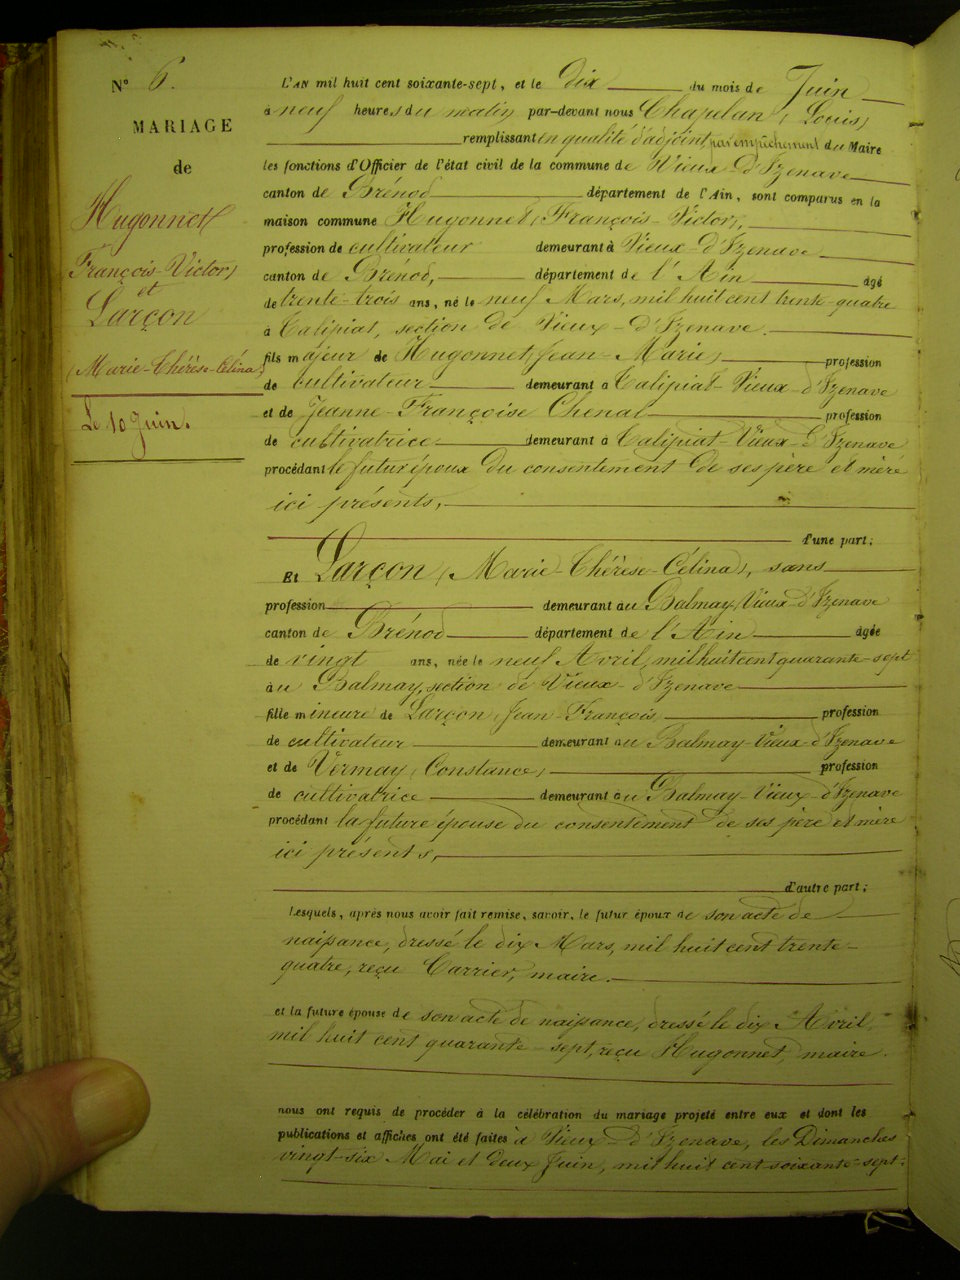 N° 6.
MARIAGE
de
Hugonnet
(François-Victor)
et
Larçon
(Marie-Thérèse-Célina)
Le 10 Juin.
L'AN mil huit cent soixante-sept, et le dix du mois de Juin
à neuf heures du matin par-devant nous Chapelan (Louis)
remplissant en qualité d'adjoint, par empêchement du Maire
les fonctions d'Officier de l'état civil de la commune de Vieux-d'Izenave
canton de Brénod département de l'Ain, sont comparus en la
maison commune Hugonnet (François-Victor),
profession de cultivateur demeurant à Vieux-d'Izenave
canton de Brénod, département de l'Ain âgé
de trente-trois ans, né le neuf Mars, mil huit cent trente-quatre
à Talipiat, section de Vieux-d'Izenave.
fils majeur de Hugonnet (Jean-Marie) profession
de cultivateur demeurant à Talipiat-Vieux-d'Izenave
et de Jeanne-Françoise Chenal profession
de cultivatrice demeurant à Talipiat-Vieux-d'Izenave
procédant le futur époux du consentement de ses père et mère
ici présents,
d'une part;
Et Larçon (Marie-Thérèse-Célina), sans
profession demeurant au Balmay, Vieux-d'Izenave
canton de Brénod département de l'Ain âgée
de vingt ans, née le neuf Avril, mil huit cent quarante-sept
au Balmay, section de Vieux-d'Izenave
fille mineure de Larçon (Jean-François) profession
de cultivateur demeurant au Balmay-Vieux-d'Izenave
et de Vermay (Constance) profession
de cultivatrice demeurant au Balmay-Vieux-d'Izenave
procédant la future épouse du consentement de ses père et mère
ici présents,
d'autre part;
Lesquels, après nous avoir fait remise, savoir, le futur époux de son acte de
naissance, dressé le dix Mars, mil huit cent trente-
quatre, reçu Carrier, maire.
et la future épouse de son acte de naissance, dressé le dix Avril,
mil huit cent quarante-sept, reçu Hugonnet, maire.
nous ont requis de procéder à la célébration du mariage projeté entre eux et dont les
publications et affiches ont été faites à Vieux-d'Izenave, les Dimanches
vingt-six Mai et deux Juin, mil huit cent soixante-sept.